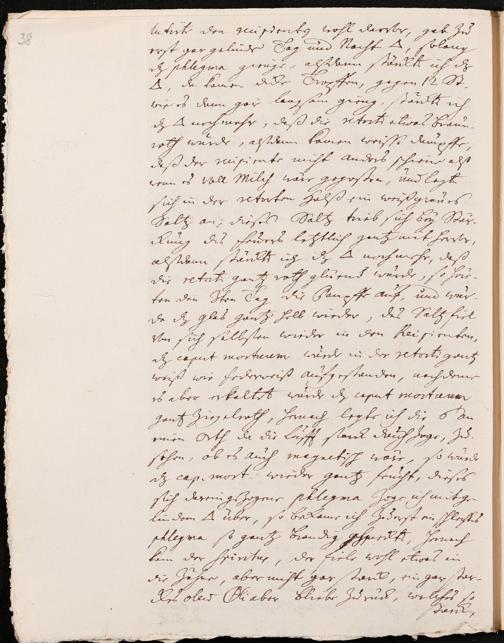 38
lutirte den recipienten wohl daran, gab zu
erst gar gelinde Tag und Nacht △, solang
dz phlegma gienge, alsdann stärckt ich dz
△, da kamen dicke Tropffen, gegen 12 St.
wie es dann gar langsam gieng, stärckt ich
dz △ noch mehr, daß die retorte etwas braun-
roth wurde, alsdann kamen weisse dämpffe,
daß der recipiente nicht anders schiene alß
wenn er voll Milch wäre gegossen, und legte
sich in der retorten Halß ein weißgraues
Saltz an; dieses Saltz trieb sich bey Stär-
ckung des feuers letztlich gantz mit herüber,
alsdann stärckt ich dz △ noch mehr, daß
die retorte gantz roth glüend wurde, so hör-
ten den Tag die Dampffe auf, und wur-
de dz glaß gantz hell wieder, das Saltz fiel
von sich selbsten wieder in den Recipienten,
dz caput mortuum wurde in der retorte gantz
weiß wie federweiß aufgestanden, nachdeme
es aber erkaltet wurde dz caput mortuum
gantz Ziegelroth, hernach legte ich die an
einen Orth da die Lufft starck durchzoge, zu
sehen, ob es auch magnetisch wäre, so wurde
dz cap. mort. wieder gantz feucht, dieses
sich hereingezogene phlegma zoge ich mit ge-
linden △ über, so bekame ich zuerst ein schlechtes
phlegma so gantz brandig schmeckte, hernach
kam der spiritus, der fiele wohl etwas in
die Zähne, aber nicht gar starck, ein gar star-
ckes oleum Oli aber bliebe zurück, welches so
starck